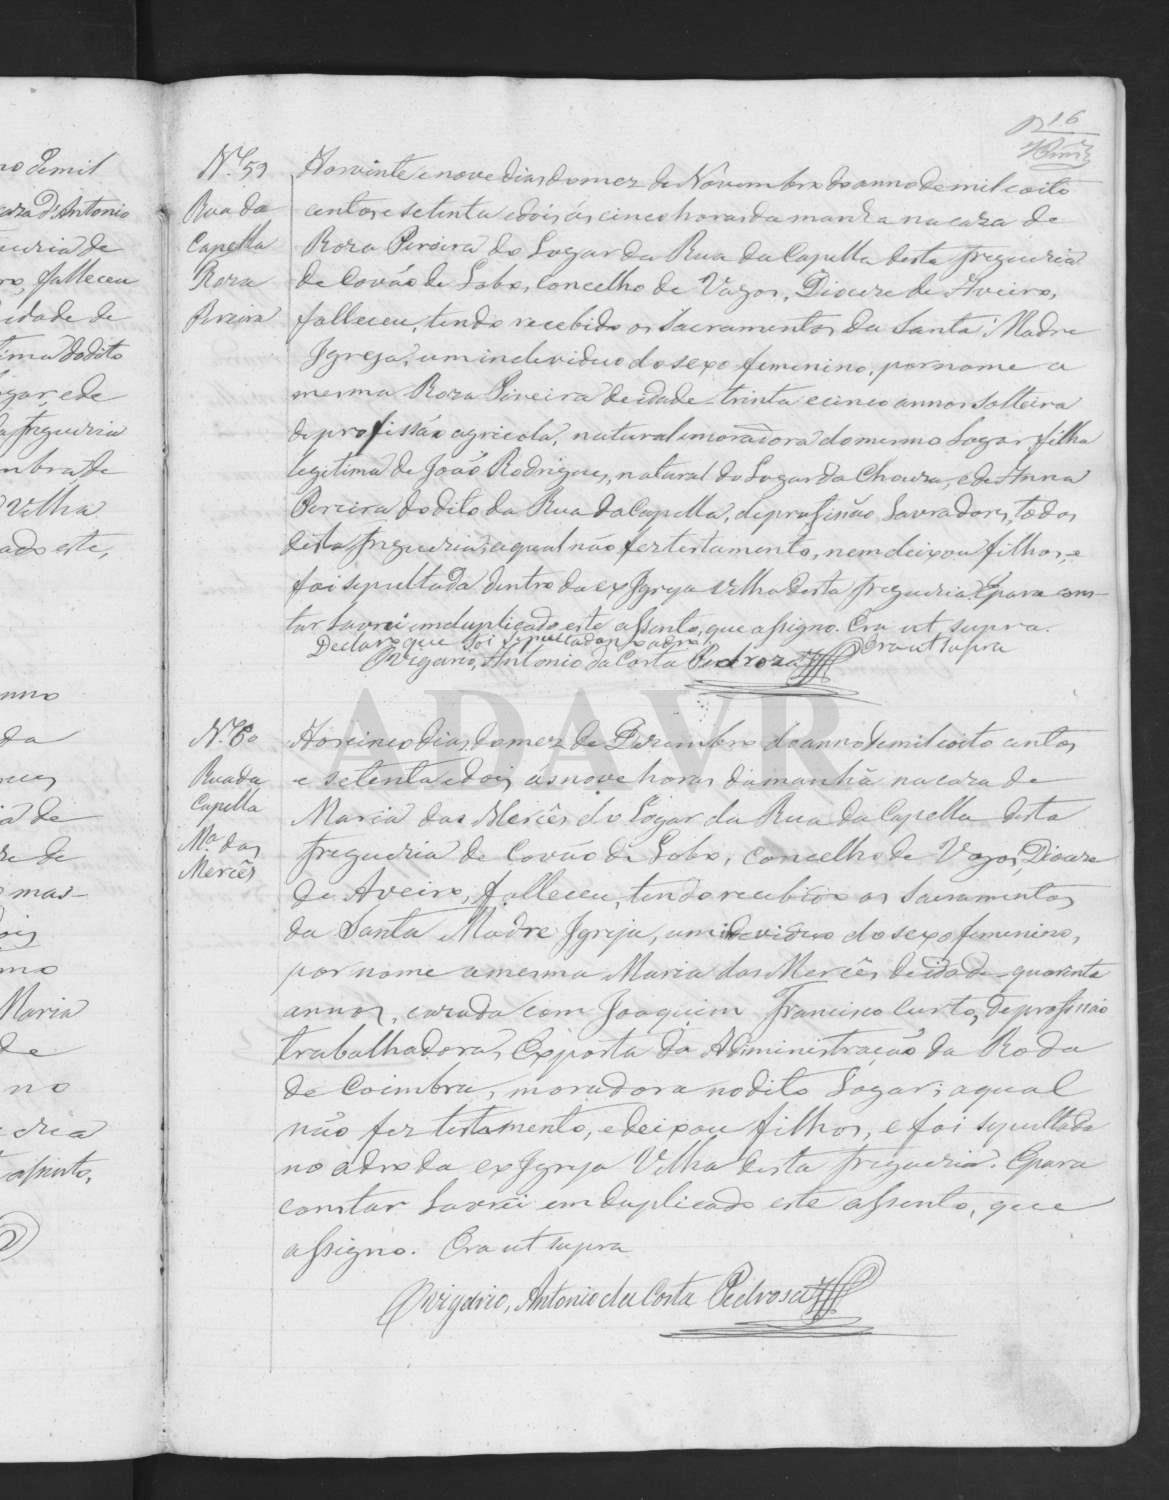 16
Nº 59
Rua da
Capella
Roza
Pereira
Aos vinte e nove dias do mez de Novembro do anno de mil e oito
centos e setenta e dois ás cinco horas da manhã na caza de
Roza Pereira do Logar da Rua da Capella desta freguezia
de Covão de Lobo, Concelho de Vagos, Diocese de Aveiro,
falleceu, tendo recebido os Sacramentos da Santa Madre
Igreja, um individuo do sexo femenino, por nome a
mesma Roza Pereira de idade trinta e cinco annos solteira
de profissão agricola, natural e moradora do mesmo Logar, filha
legitima de João Rodrigues, natural do Logar da Chouza, e de Anna
Pereira do dito da Rua da Capella, de profissão Lavradores, todos
desta freguezia; a qual não fez testamento, nem deixou filhos, e
foi sepultada dentro da ex Igreja velha desta freguezia. E para cons-
tar lavrei em duplicado este assento, que assigno. Era ut supra.
Declaro que foi sepultada no adro. Era ut supra
O vigario, Antonio da Costa Pedroza
Nº 60
Rua da
Capella
Mª das
Mercês
Aos cinco dias do mez de Dezembro do anno de mil e oito centos
e setenta e dois as nove horas da manhã na caza de
Maria das Mercês do Logar da Rua da Capella desta
freguezia de Covão de Lobo, Concelho de Vagos, Diocese
de Aveiro, falleceu, tendo recebido os Sacramentos
da Santa Madre Igreja, um individuo do sexo femenino,
por nome a mesma Maria das Mercês de idade quarenta
annos, cazada com Joaquim Francisco Curto, de profissão
trabalhadora, Exposta da Administração da Roda
de Coimbra, moradora no dito Logar; a qual
não fez testamento, e deixou filhos, e foi sepultada
no adro da ex Igreja Velha desta freguezia. E para
constar lavrei em duplicado este assento, que
assigno. Era ut supra
O vigario, Antonio da Costa Pedrosa
ADAVR
no de mil
caza d'Antonio
guezia de
falleceu
idade de
do dito
gar, e de
freguezia
Velha
este,
anno
da
de
mas-
no
Maria
de
no
assento,